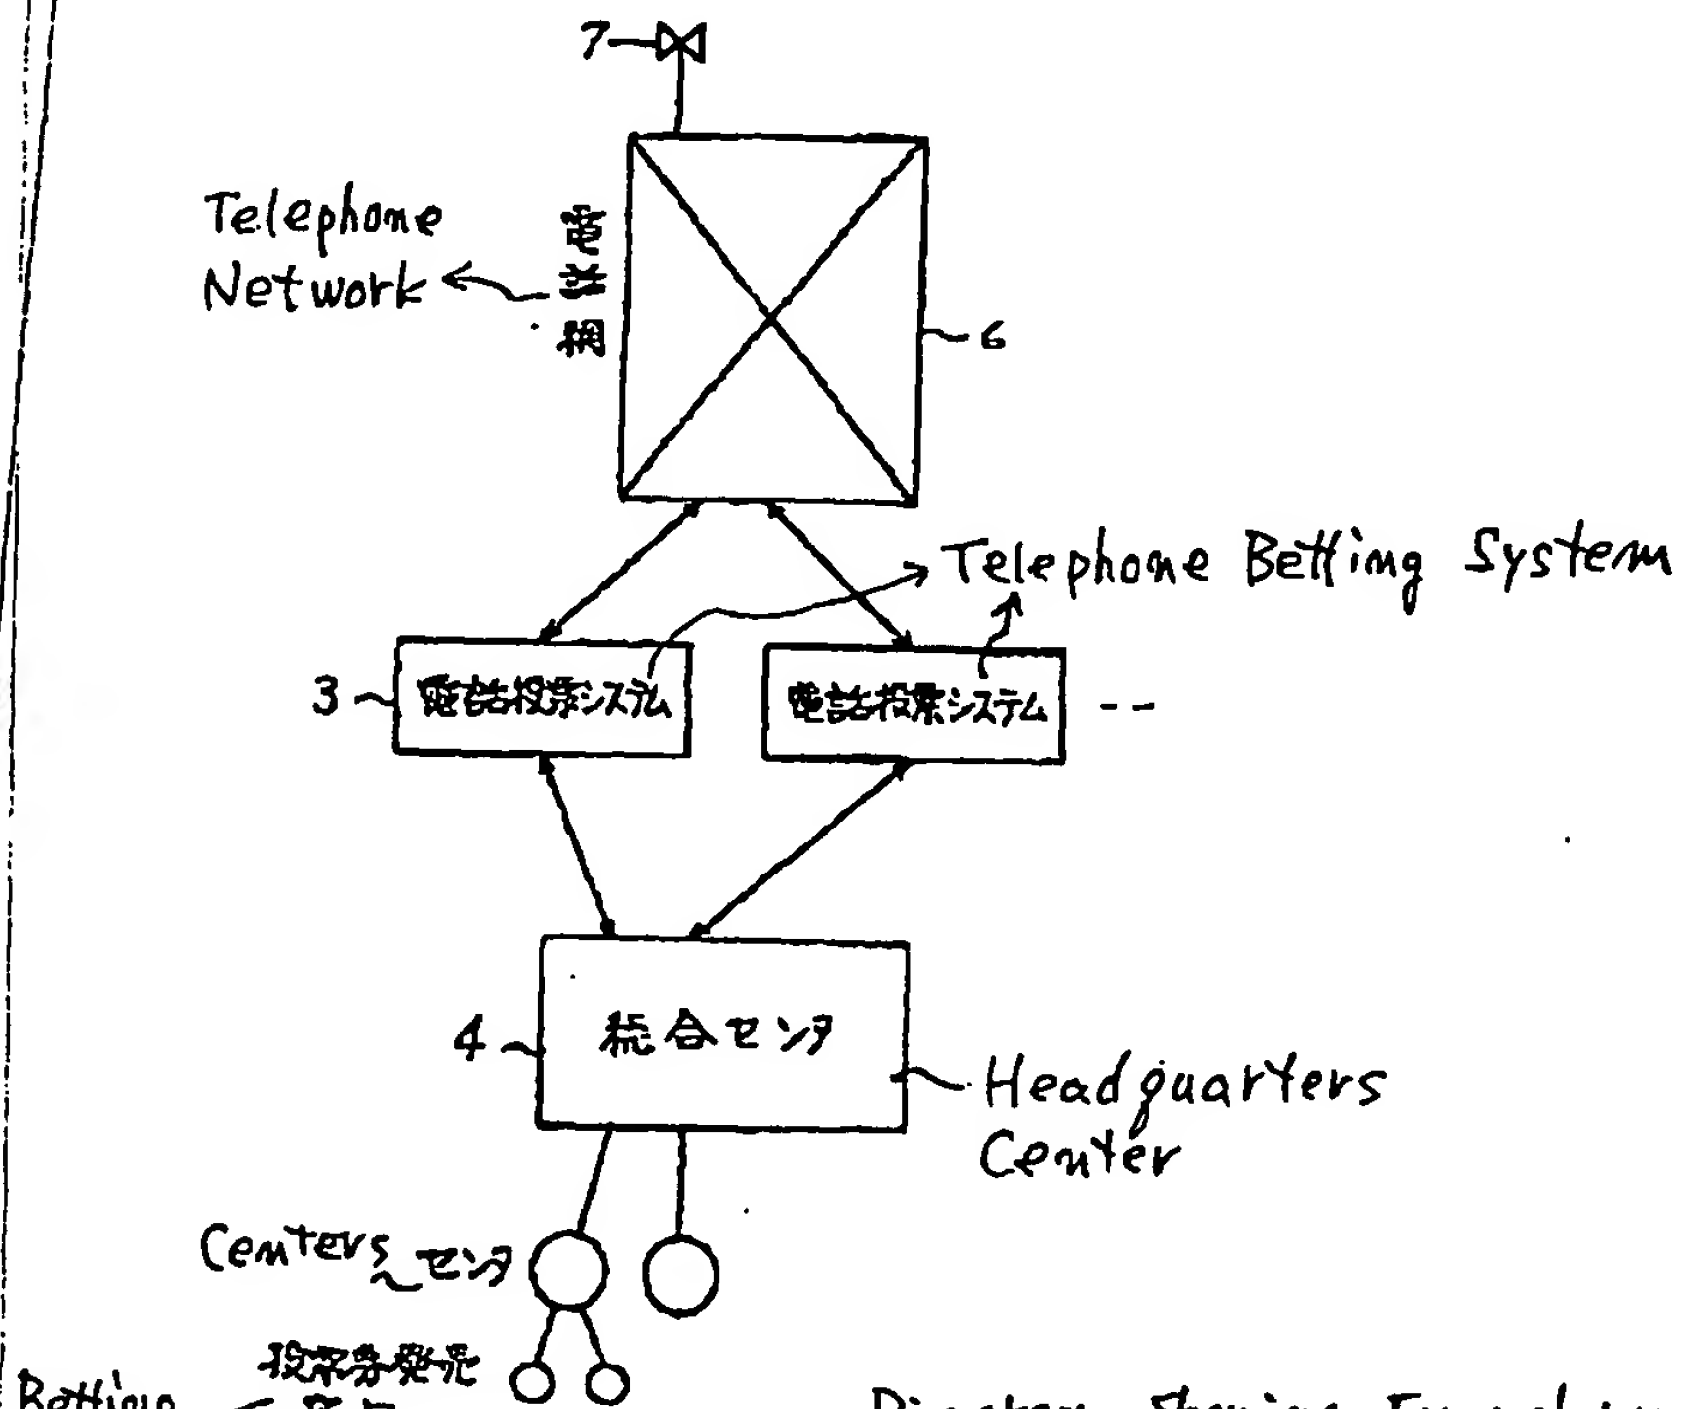 7
Telephone
Network
電話網
6
Telephone Betting System
3
電話投票システム
電話投票システム
--
4
総合センタ
Headquarters
Center
Centers
センタ
投票券発売
Betting
Diagram Showing